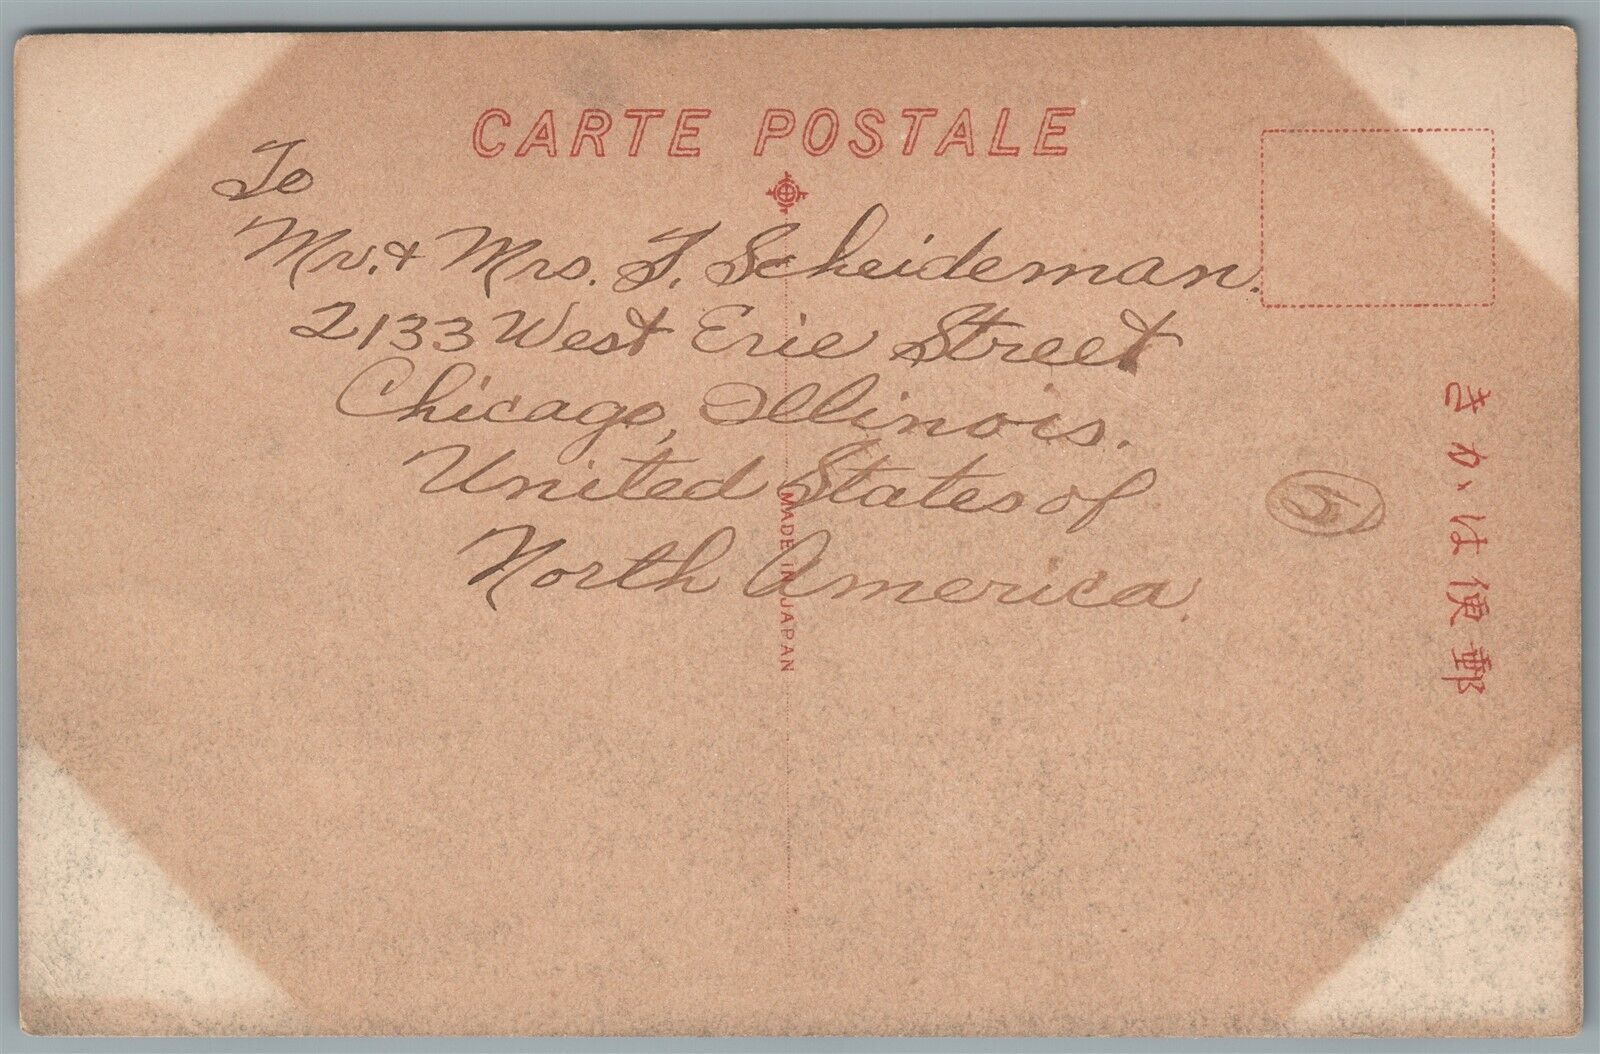 CARTE POSTALE
To
Mr. & Mrs. F. Scheideman.
2133 West Erie Street
Chicago, Illinois.
United States of
North America.
MADE IN JAPAN
きかゝは便郵